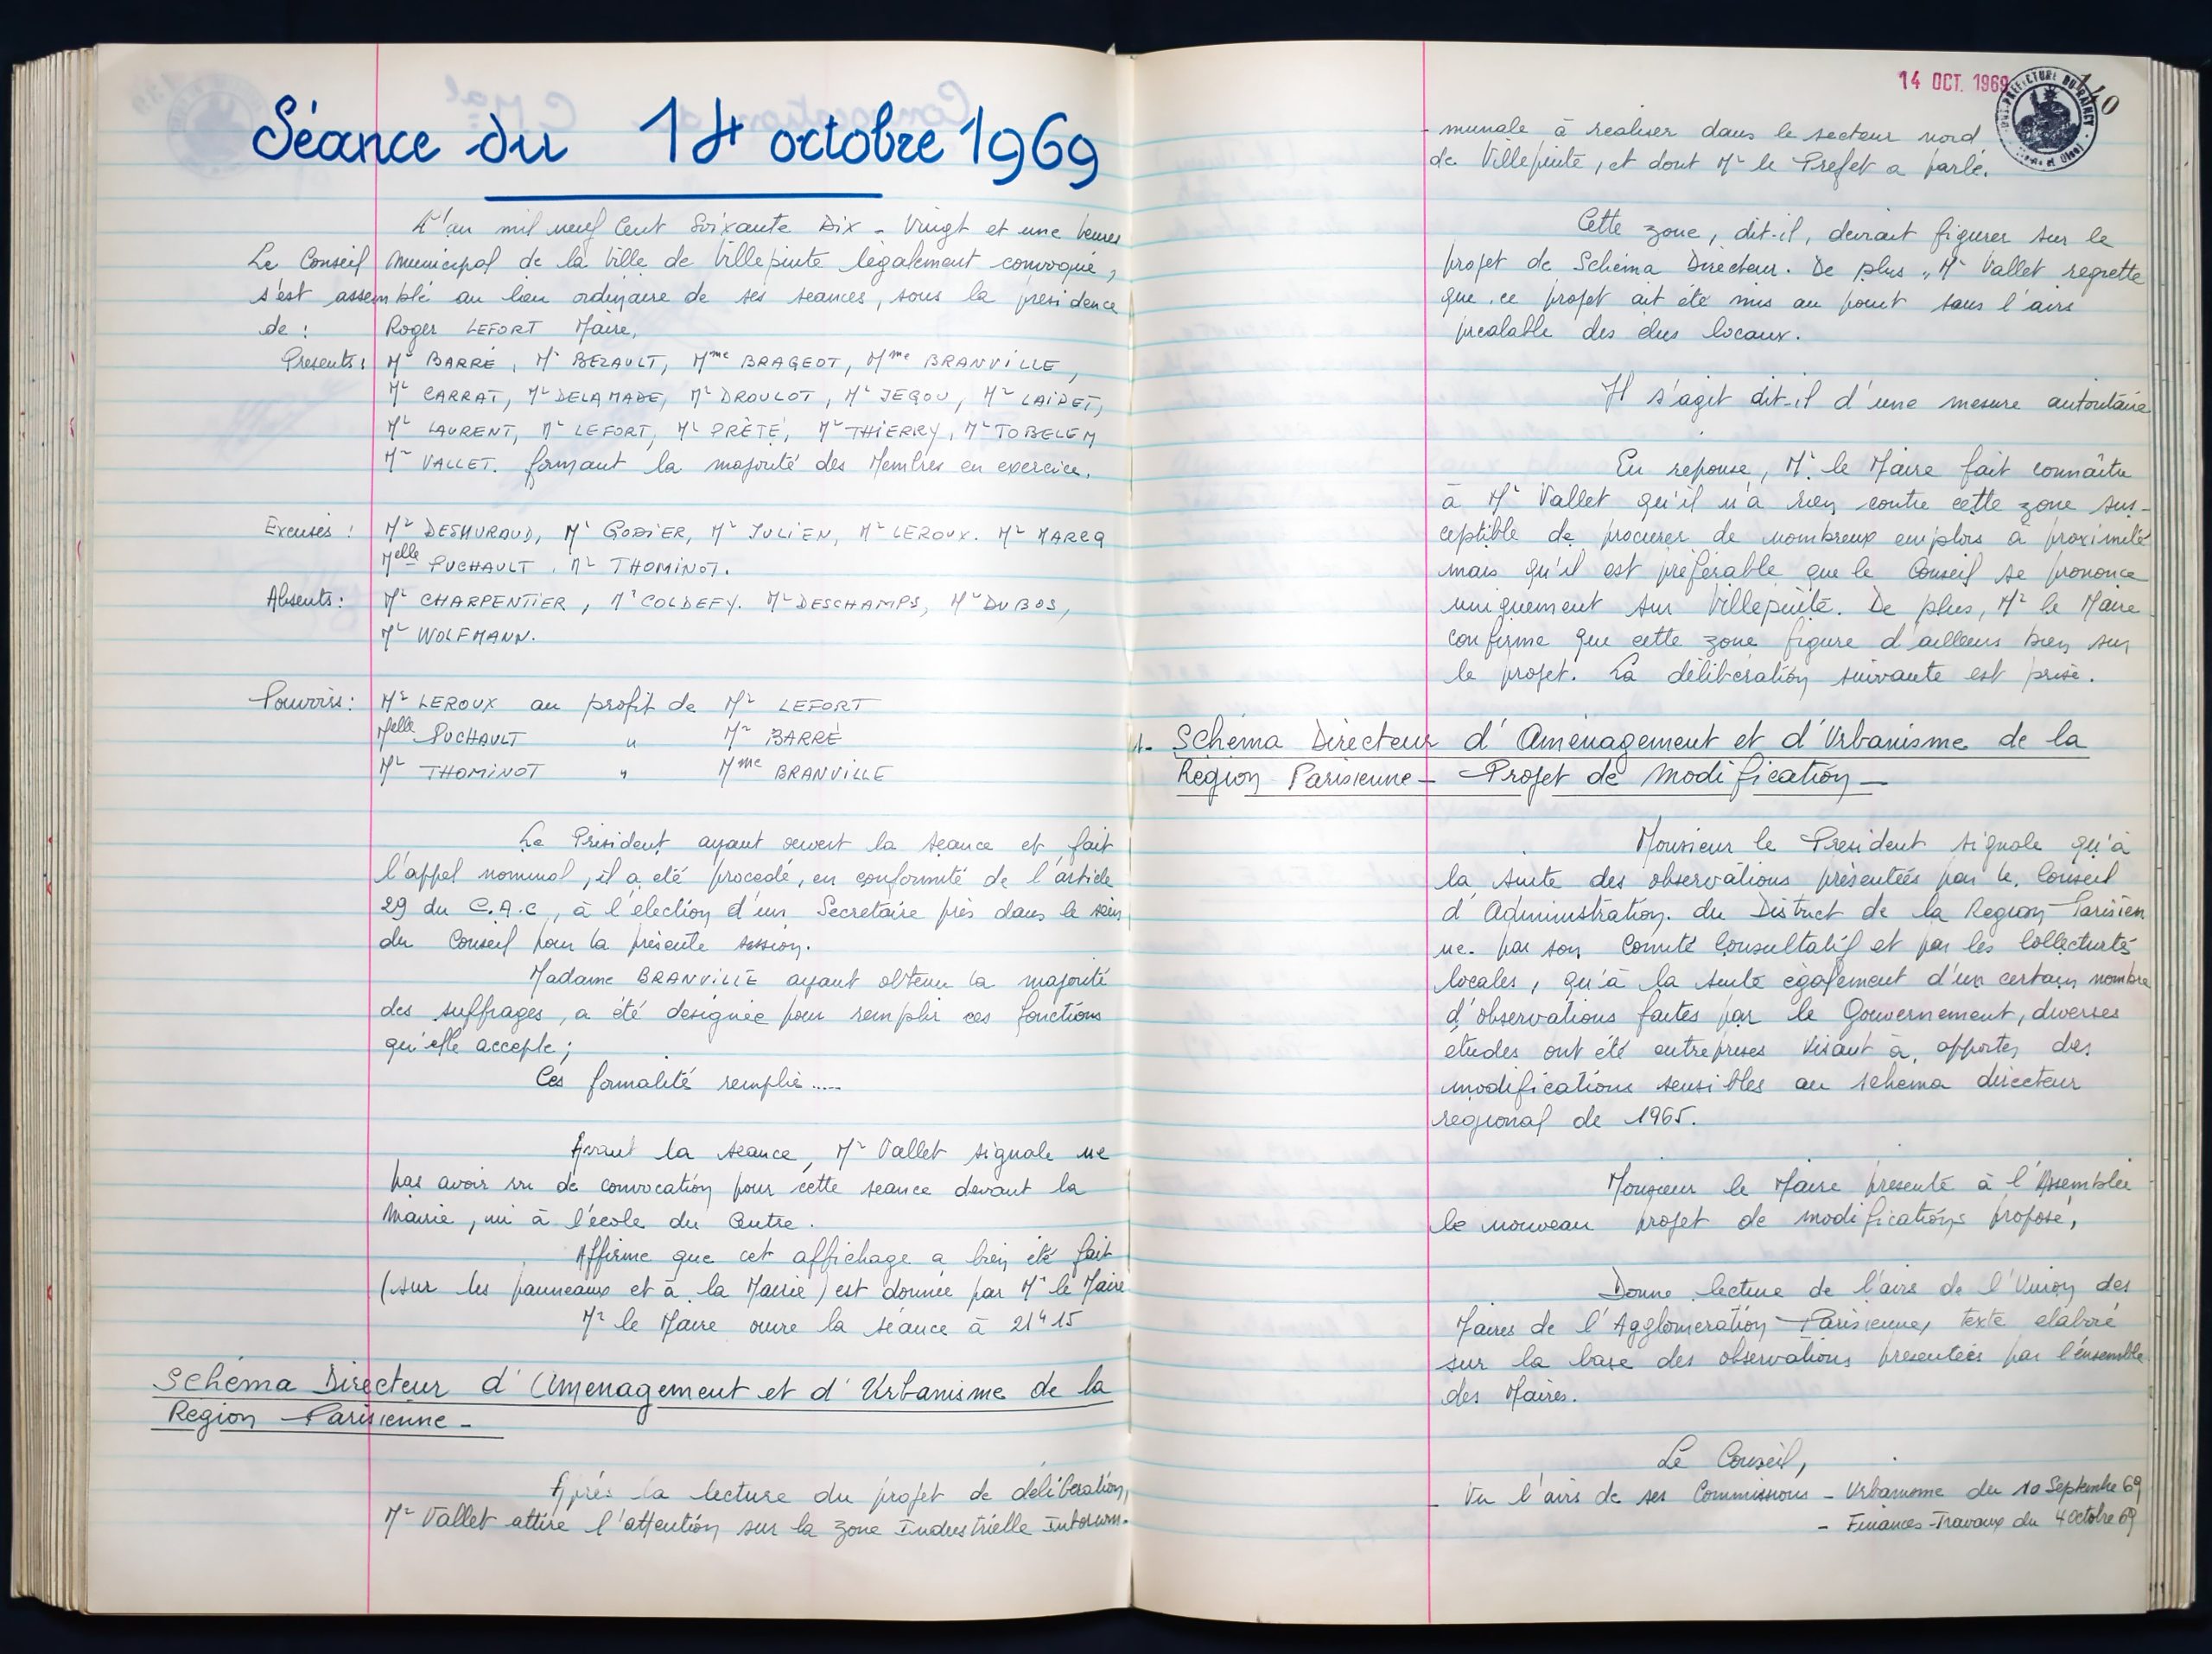 Séance du 14 octobre 1969
L'an mil neuf Cent Soixante Dix - Vingt et une heures
Le Conseil Municipal de la Ville de Villepinte légalement convoqué,
s'est assemblé au lieu ordinaire de ses séances, sous la présidence
de : Roger LEFORT Maire,
Présents : Mr BARRÉ, Mr BEZAULT, Mme BRAGEOT, Mme BRANVILLE,
Mr CARRAT, Mr DELAMADE, Mr DROULOT, Mr JEGOU, Mr LAIDET,
Mr LAURENT, Mr LEFORT, Mr PRÈTÉ, Mr THIERRY, Mr TOBELEM
Mr VALLET. formant la majorité des Membres en exercice.
Excusés : Mr DESMURAUD, Mr GODIER, Mr JULIEN, Mr LEROUX. Mr MARCQ
Melle PUCHAULT, Mr THOMINOT.
Absents : Mr CHARPENTIER, Mr COLDEFY. Mr DESCHAMPS, Mr DUBOS,
Mr WOLFMANN.
Pouvoirs : Mr LEROUX au profit de Mr LEFORT
Melle PUCHAULT " Mr BARRÉ
Mr THOMINOT " Mme BRANVILLE
Le Président ayant ouvert la séance et fait
l'appel nominal, il a été procédé, en conformité de l'article
29 du C.A.C, à l'élection d'un Secrétaire près dans le sein
du Conseil pour la présente session.
Madame BRANVILLE ayant obtenu la majorité
des suffrages, a été désignée pour remplir ces fonctions
qu'elle accepte ;
Ces formalité remplie .....
Avant la séance, Mr Vallet signale ne
pas avoir vu de convocation pour cette séance devant la
Mairie, ni à l'école du Centre.
Affirme que cet affichage a bien été fait
(sur les panneaux et à la Mairie) est donnée par Mr le Maire
Mr le Maire ouvre la séance à 21h15
Schéma Directeur d'Aménagement et d'Urbanisme de la
Région Parisienne -
Après la lecture du projet de délibération,
Mr Vallet attire l'attention sur la zone Industrielle Intercom-
14 OCT. 1969
140
SOUS-PRÉFECTURE DU RAINCY
- munale à réaliser dans le secteur nord
de Villepinte, et dont Mr le Préfet a parlé.
Cette zone, dit-il, devrait figurer sur le
projet de Schéma Directeur. De plus, Mr Vallet regrette
que ce projet ait été mis au point sans l'avis
préalable des élus locaux.
Il s'agit dit-il d'une mesure autoritaire
En réponse, Mr le Maire fait connaître
à Mr Vallet qu'il n'a rien contre cette zone sus-
ceptible de procurer de nombreux emplois à proximité
mais qu'il est préférable que le Conseil se prononce
uniquement sur Villepinte. De plus, Mr le Maire
confirme que cette zone figure d'ailleurs bien sur
le projet. La délibération suivante est prise.
1- Schéma Directeur d'Aménagement et d'Urbanisme de la
Région Parisienne - Projet de modification -
Monsieur le Président signale qu'à
la suite des observations présentées par le Conseil
d'Administration. du District de la Région Parisien
ne. par son Comité Consultatif et par les Collectivités
locales, qu'à la suite également d'un certain nombre
d'observations faites par le Gouvernement, diverses
études ont été entreprises visant à apporter des
modifications sensibles au schéma directeur
régional de 1965.
Monsieur le Maire présente à l'Assemblée
le nouveau projet de modifications proposé,
Donne lecture de l'avis de l'Union des
Maires de l'Agglomération Parisienne, texte élaboré
sur la base des observations présentées par l'ensemble
des Maires.
Le Conseil,
- Vu l'avis de ses Commissions - Urbanisme du 10 Septembre 69
- Finances-Travaux du 4 Octobre 69